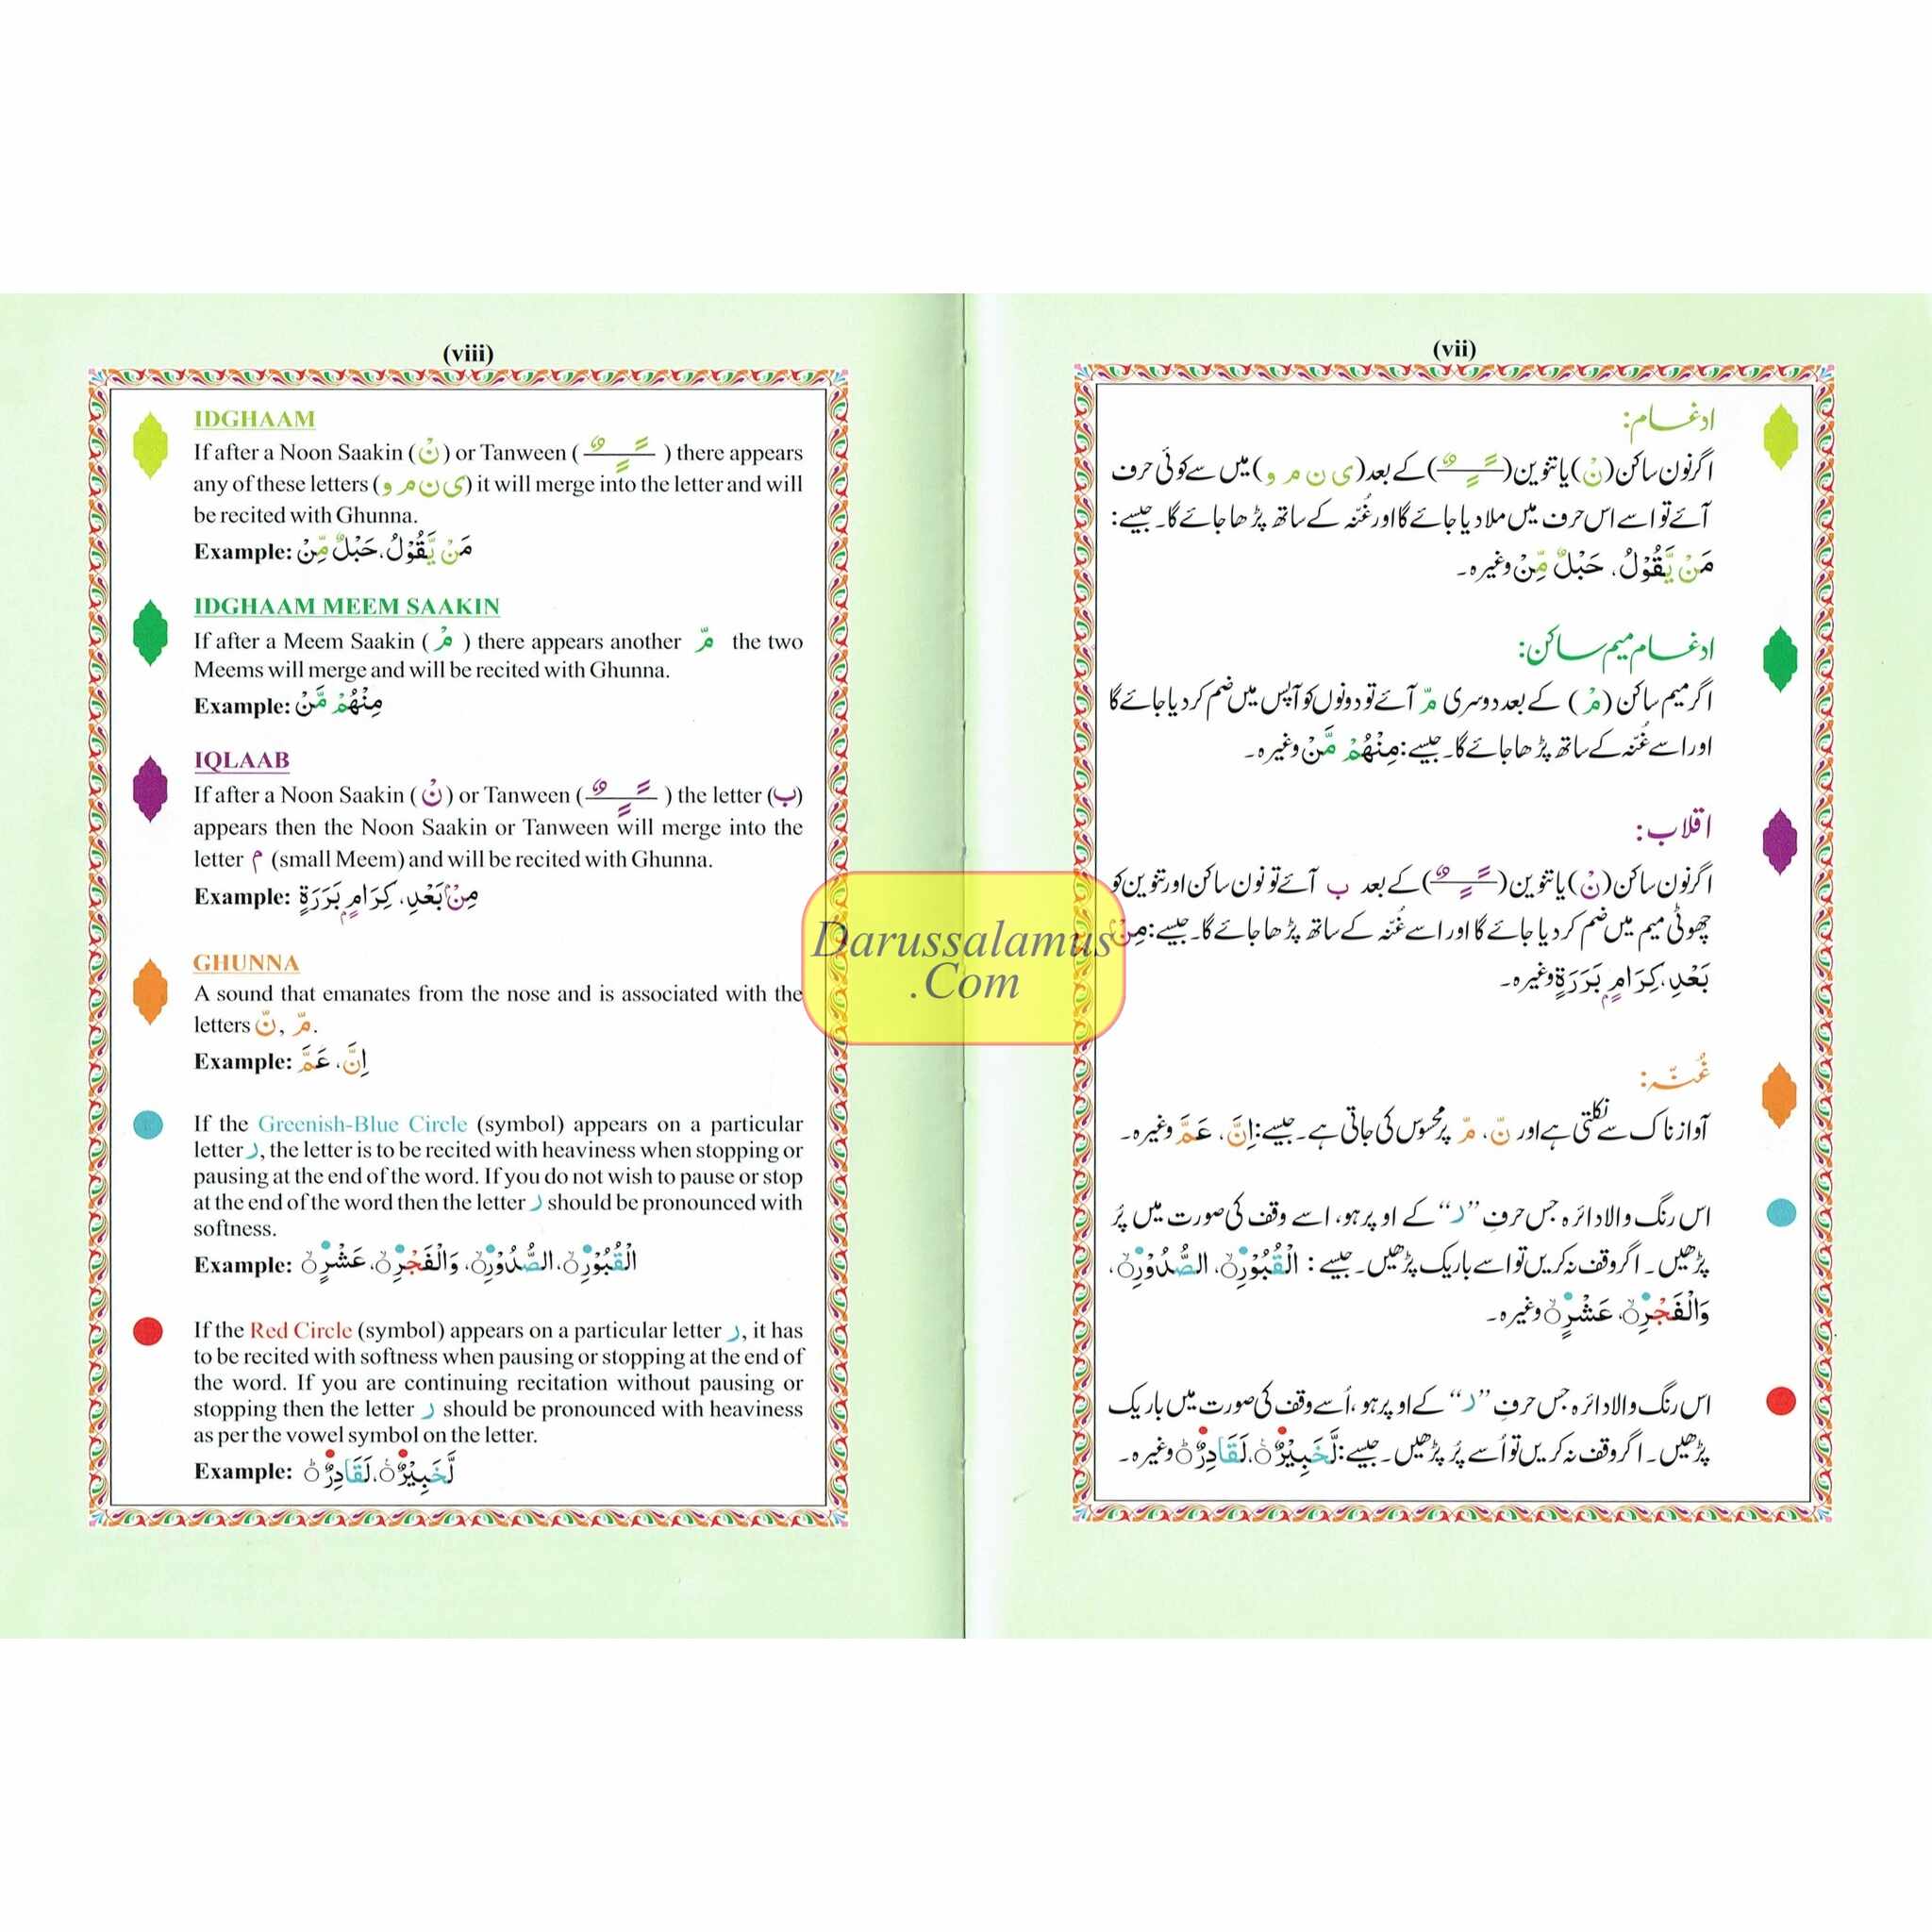 (viii)
IDGHAAM
If after a Noon Saakin (نْ) or Tanween ( ــًــٍــٌ ) there appears
any of these letters (ی ن م و) it will merge into the letter and will
be recited with Ghunna.
Example: مَنْ یَّقُوْلُ، حَبْلٌ مِّنْ
IDGHAAM MEEM SAAKIN
If after a Meem Saakin ( مْ ) there appears another مّ the two
Meems will merge and will be recited with Ghunna.
Example: مِنْهُمْ مَّنْ
IQLAAB
If after a Noon Saakin ( نْ ) or Tanween ( ــًــٍــٌ ) the letter (ب)
appears then the Noon Saakin or Tanween will merge into the
letter م (small Meem) and will be recited with Ghunna.
Example: مِنْۢ بَعْدِ، كِرَامٍۭ بَرَرَةٍ
GHUNNA
A sound that emanates from the nose and is associated with the
letters نّ, مّ.
Example: اِنَّ، عَمَّ
If the Greenish-Blue Circle (symbol) appears on a particular
letter ر, the letter is to be recited with heaviness when stopping or
pausing at the end of the word. If you do not wish to pause or stop
at the end of the word then the letter ر should be pronounced with
softness.
Example: الْقُبُوْرِۙ، الصُّدُوْرِۙ، وَالْفَجْرِۙ، عَشْرٍۙ
If the Red Circle (symbol) appears on a particular letter ر, it has
to be recited with softness when pausing or stopping at the end of
the word. If you are continuing recitation without pausing or
stopping then the letter ر should be pronounced with heaviness
as per the vowel symbol on the letter.
Example: لَّخَبِیْرٌ، لَقَادِرٌؕ
(vii)
ادغام:
اگر نون ساکن (نْ) یا تنوین (ــًــٍــٌ) کے بعد (ی ن م و) میں سے کوئی حرف
آئے تو اسے اس حرف میں ملا دیا جائے گا اور غُنّہ کے ساتھ پڑھا جائے گا۔ جیسے:
مَنْ یَّقُوْلُ، حَبْلٌ مِّنْ وغیرہ۔
ادغام میم ساکن:
اگر میم ساکن (مْ) کے بعد دوسری مّ آئے تو دونوں کو آپس میں ضم کر دیا جائے گا
اور اسے غُنّہ کے ساتھ پڑھا جائے گا۔ جیسے: مِنْهُمْ مَّنْ وغیرہ۔
اقلاب:
اگر نون ساکن (نْ) یا تنوین (ــًــٍــٌ) کے بعد ب آئے تو نون ساکن اور تنوین کو
چھوٹی میم میں ضم کر دیا جائے گا اور اسے غُنّہ کے ساتھ پڑھا جائے گا۔ جیسے: مِنْۢ
بَعْدِ، كِرَامٍۭ بَرَرَةٍ وغیرہ۔
غُنّہ:
آواز ناک سے نکلتی ہے اور نّ، مّ پر محسوس کی جاتی ہے۔ جیسے: اِنَّ، عَمَّ وغیرہ۔
اس رنگ والا دائرہ جس حرفِ ”ر“ کے اوپر ہو، اسے وقف کی صورت میں پُر
پڑھیں۔ اگر وقف نہ کریں تو اسے باریک پڑھیں۔ جیسے: الْقُبُوْرِۙ، الصُّدُوْرِۙ،
وَالْفَجْرِۙ، عَشْرٍۙ وغیرہ۔
اس رنگ والا دائرہ جس حرفِ ”ر“ کے اوپر ہو، اُسے وقف کی صورت میں باریک
پڑھیں۔ اگر وقف نہ کریں تو اُسے پُر پڑھیں۔ جیسے: لَّخَبِیْرٌ، لَقَادِرٌؕ وغیرہ۔
Darussalamus
.Com